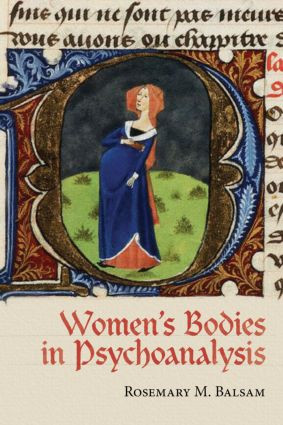 sins qui ne sont pas incure
vous auons ou chappitre d
WOMEN'S BODIES
IN PSYCHOANALYSIS
ROSEMARY M. BALSAM